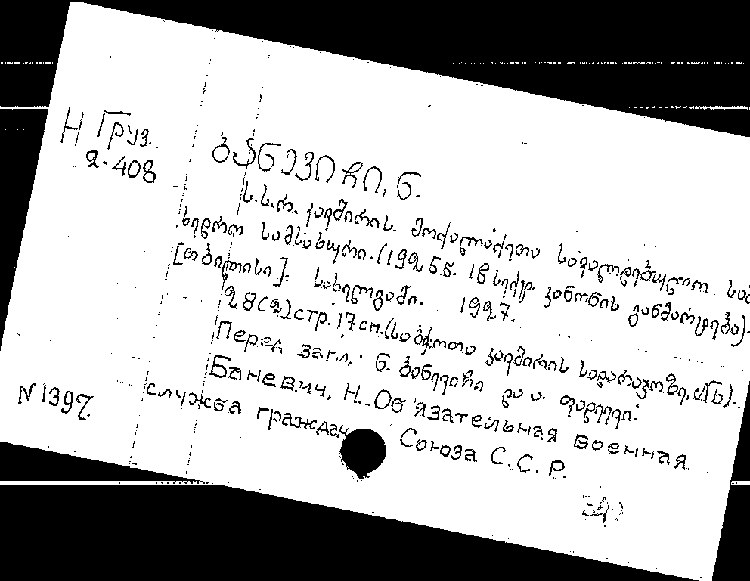 Н Груз.
2-408
ბანევიჩი, ნ.
ს.ს.რ. კავშირის მოქალაქეთა სავალდებულო სამ
ხედრო სამსახური. (1925 წ. 18 სექტ. კანონის განმარტება).
[თბილისი]. სახელგამი. 1927.
28 (2) стр. 17 см. (საბჭოთა კავშირის
Перед загл.: ნ. ბანევიჩი და ა.
Баневич, Н. Обязательная военная
служба граждан Союза С.С.Р.
N 1392